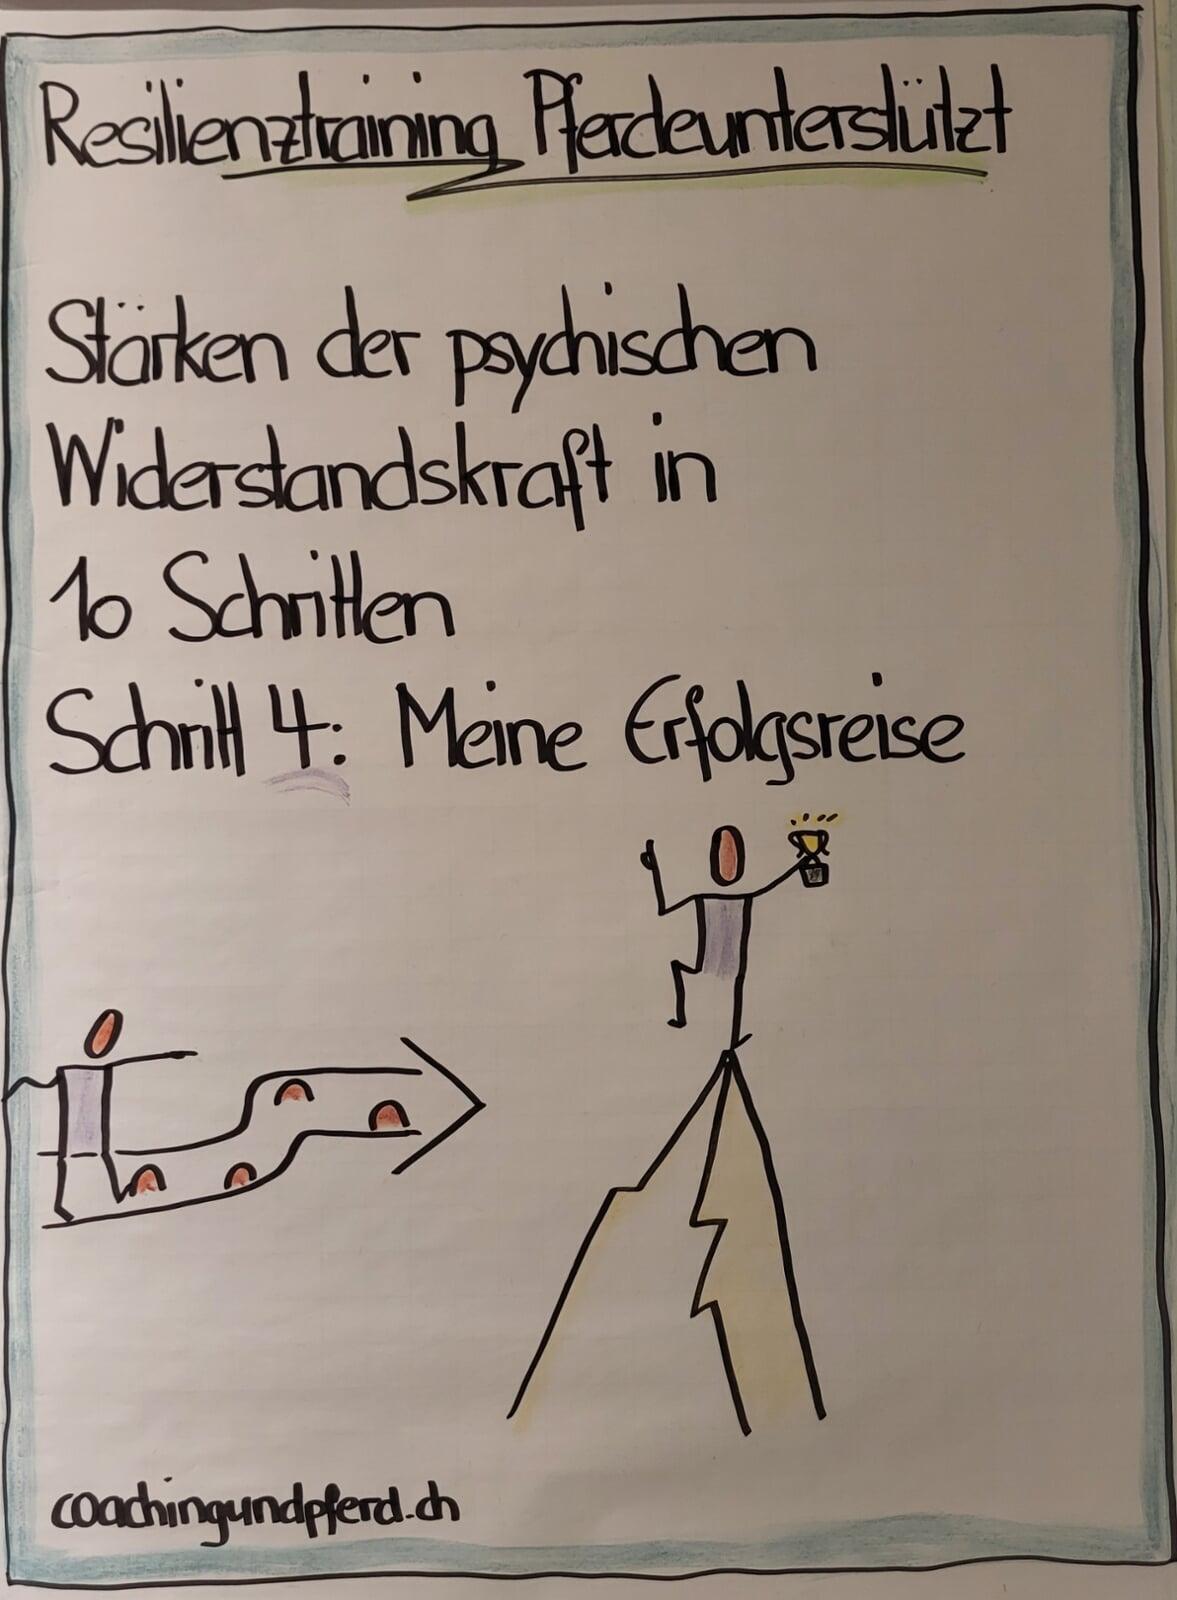 Resilienztraining Pferdeunterstützt
Stärken der psychischen
Widerstandskraft in
10 Schritten
Schritt 4: Meine Erfolgsreise
coachingundpferd.ch